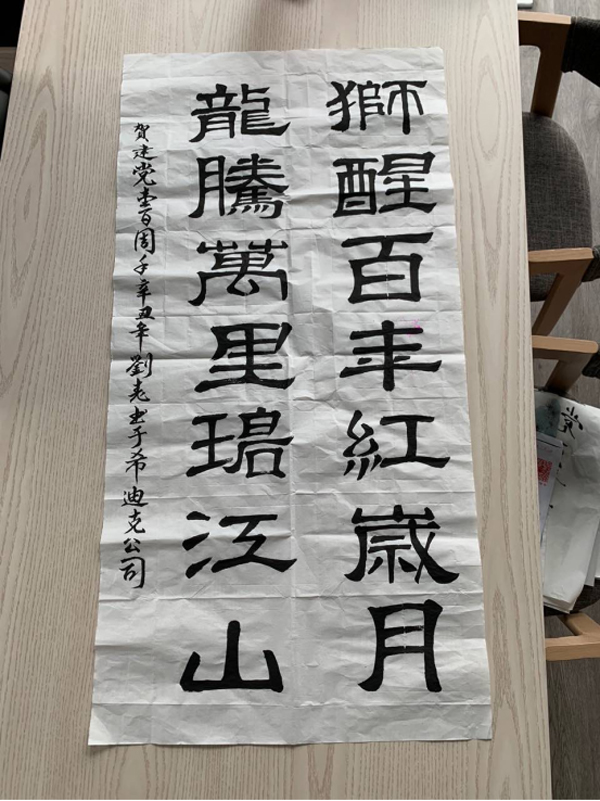 獅醒百年紅歲月
龍騰萬里碧江山
賀建党壹百周年辛丑年劉老书于希迪克公司
党